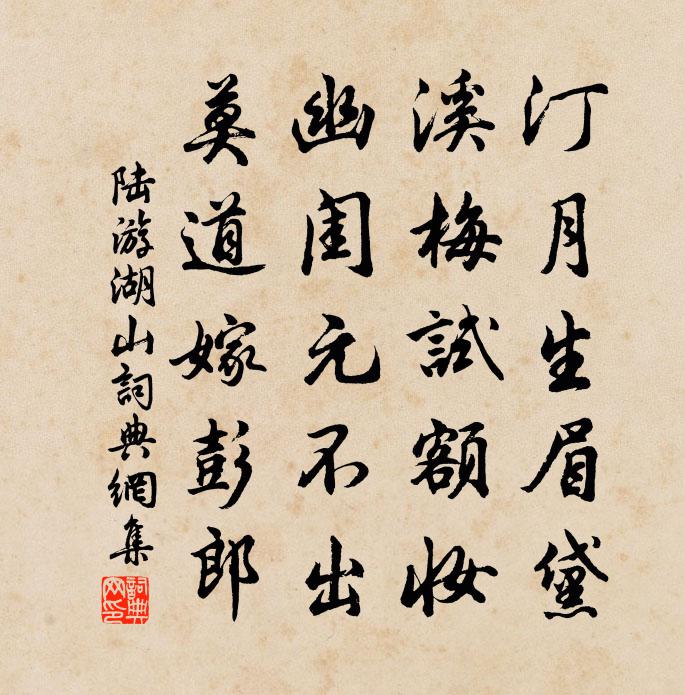 汀月生眉黛
溪梅試額妆
幽閨元不出
莫道嫁彭郎
陆游湖山詞典網集
詞典网印